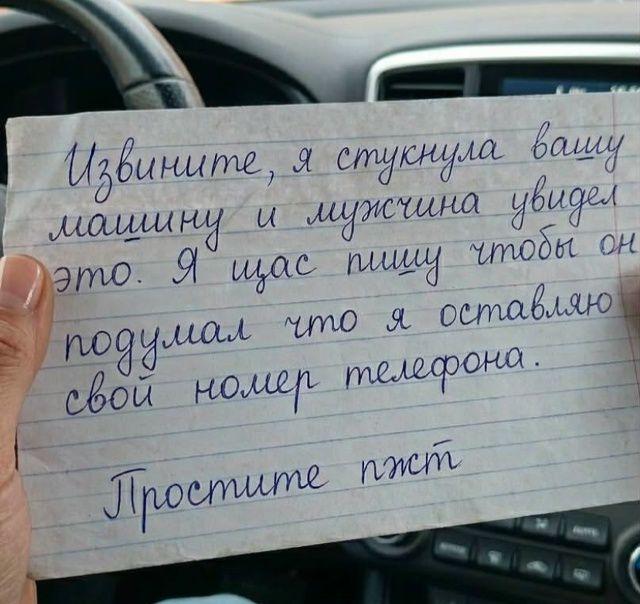 Извините, я стукнула вашу
машину и мужчина увидел
это. Я щас пишу чтобы он
подумал что я оставляю
свой номер телефона.
Простите пжст